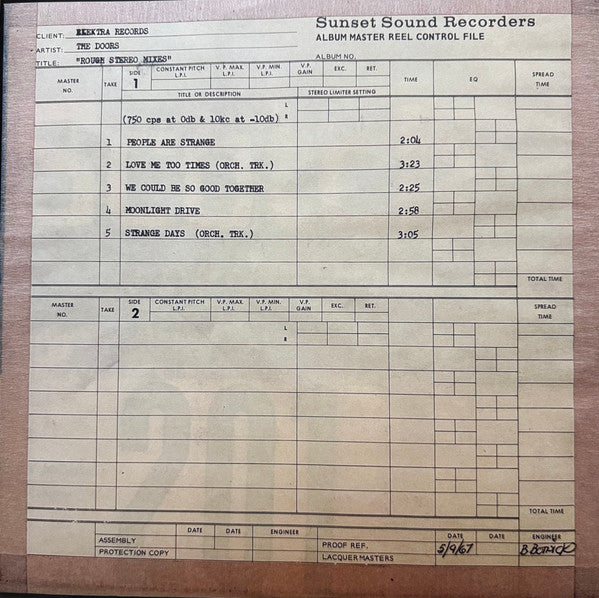 Sunset Sound Recorders
CLIENT: ELEKTRA RECORDS
ALBUM MASTER REEL CONTROL FILE
ARTIST: THE DOORS
ALBUM NO.
TITLE: "ROUGH STEREO MIXES"
MASTER NO. TAKE SIDE 1 CONSTANT PITCH L.P.I. V.P. MAX. L.P.I. V.P. MIN. L.P.I. V.P. GAIN EXC. RET. TIME EQ SPREAD TIME
TITLE OR DESCRIPTION STEREO LIMITER SETTING
L
(750 cps at 0db & 10kc at -10db) R
1 PEOPLE ARE STRANGE 2:04
2 LOVE ME TOO TIMES (ORCH. TRK.) 3:23
3 WE COULD BE SO GOOD TOGETHER 2:25
4 MOONLIGHT DRIVE 2:58
5 STRANGE DAYS (ORCH. TRK.) 3:05
TOTAL TIME
MASTER NO. TAKE SIDE 2 CONSTANT PITCH L.P.I. V.P. MAX. L.P.I. V.P. MIN. L.P.I. V.P. GAIN EXC. RET. SPREAD TIME
L
R
TOTAL TIME
DATE DATE ENGINEER DATE DATE ENGINEER
ASSEMBLY PROOF REF. 5/9/67 B. BOTNICK
PROTECTION COPY LACQUER MASTERS